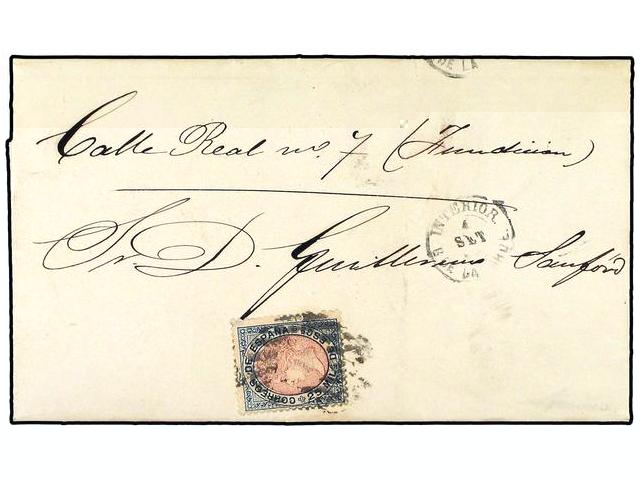 DE LA
Calle Real no. 7 (Fundicion)
INTERIOR
4
SET
DE LA
Sr. D. Guillermo Sanford
CORREOS DE ESPAÑA
25 MIL. DE ESCO